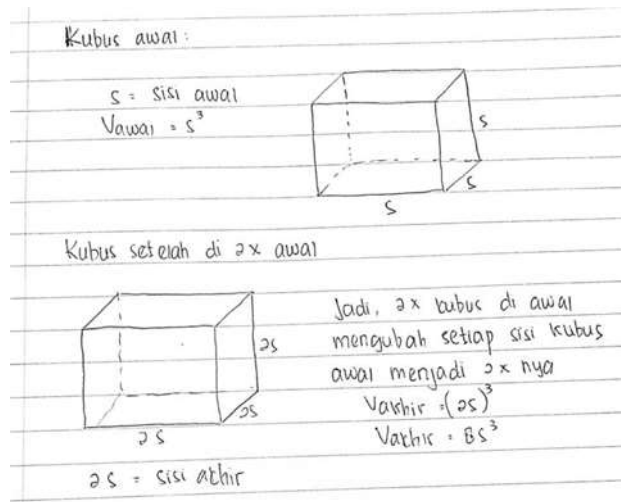 Kubus awal:
s = sisi awal
Vawal = s³
s
s
s
Kubus setelah di 2x awal
2s
2s
2s
2s = sisi akhir
Jadi, 2x kubus di awal
mengubah setiap sisi kubus
awal menjadi 2x nya
Vakhir = (2s)³
Vakhir = 8s³